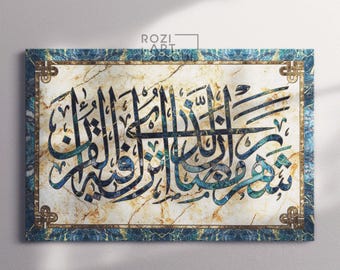 ROZI
ART
شهر رمضان الذي أنزل فيه القرآن